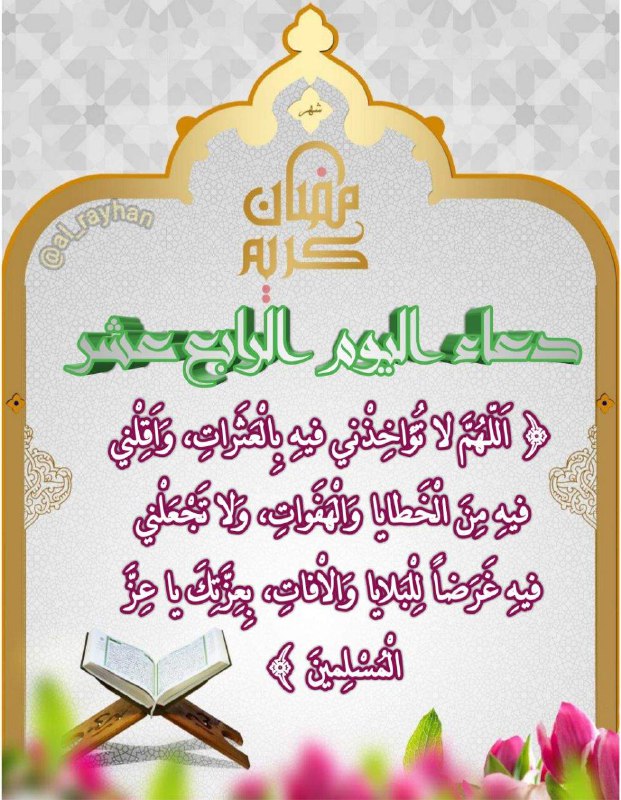 شهر
رمضان
كريم
@al_rayhan
دعاء اليوم الرابع عشر
﴿ اَللّهُمَّ لا تُؤاخِذْني فيهِ بِالْعَثَراتِ، وَاَقِلْني
فيهِ مِنَ الْخَطايا وَالْهَفَواتِ، وَلا تَجْعَلْني
فيهِ غَرَضاً لِلْبَلايا وَالْافاتِ، بِعِزَّتِكَ يا عِزَّ
الْمُسْلِمينَ ﴾